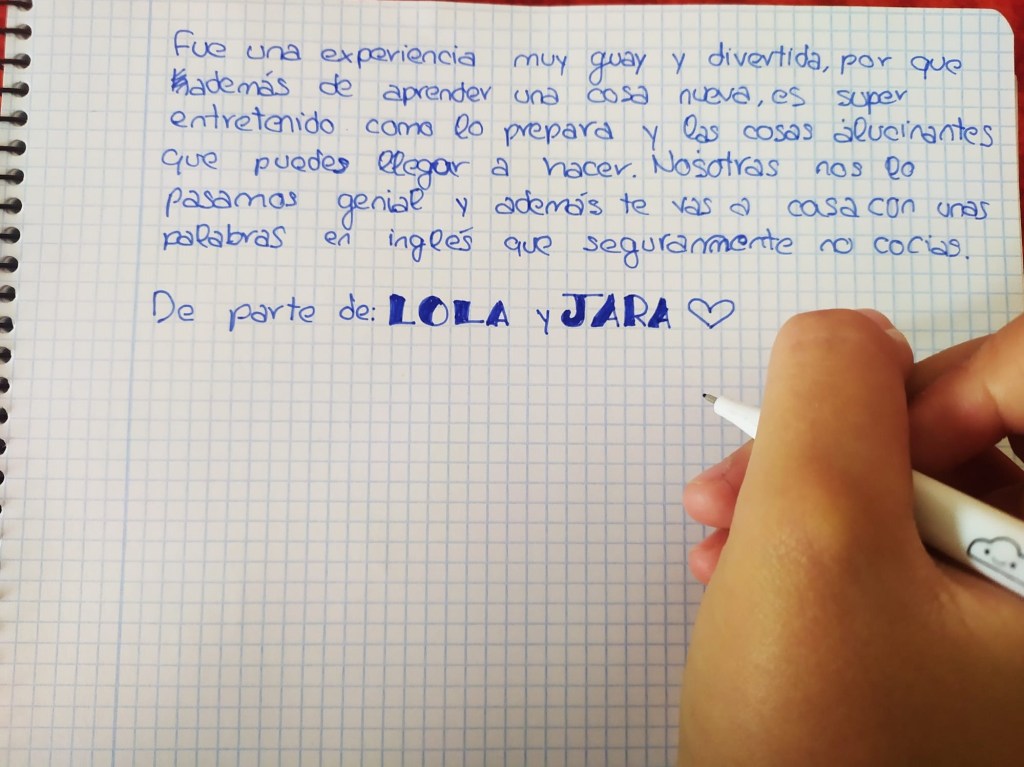 Fue una experiencia muy guay y divertida, por que
además de aprender una cosa nueva, es super
entretenido como lo prepara y las cosas álucinantes
que puedes llegar a hacer. Nosotras nos lo
pasamos genial y además te vas a casa con unas
palabras en inglés que seguranmente no cocias.
De parte de: LOLA y JARA ♡